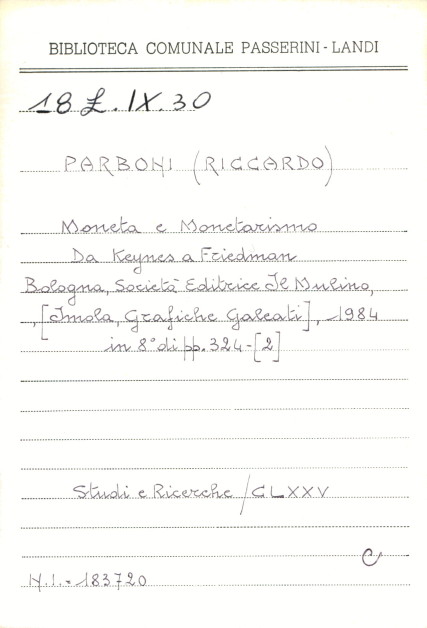 BIBLIOTECA COMUNALE PASSERINI - LANDI
18 £. IX. 30
PARBONI (RICCARDO)
Moneta e Monetarismo
Da Keynes a Friedman
Bologna, Società Editrice Il Mulino,
, [Imola, Grafiche Galeati], 1984
in 8° di pp. 324-[2]
Studi e Ricerche / CLXXV
C
N.I. = 183720